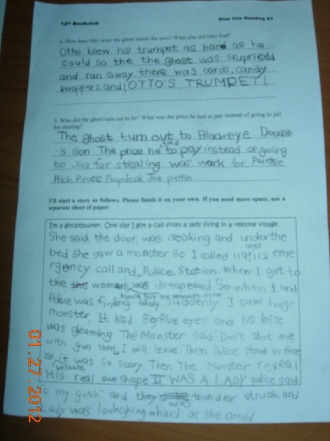 12th Bookclub
Step Into Reading #3
4. How does Otto scare the ghost inside the cave? What else did Otto find?
Otto blew his trumpet as hard as he
could so the the ghost was
and ran away there was cards, candy
wrappers and OTTO'S TRUMPET!
5. Who did the ghost turn out to be? What was the price he had to pay instead of going to jail
for stealing?
The ghost turn out to Blackeye Doodle
's son The price he had to pay instead of going
to Jail for stealing was work for
Hick Pirate
I'll start a story as follows. Please finish it on your own. If you need more space, use a
separate sheet of paper.
I'm a ghostbuster. One day I got a call from a lady living in a remote village.
She said the door was creaking and under the
bed she saw a monster So I called 119, 112 eme
rgency call and Police Station. When I got to
the the woman was disapeared So when I and
Police was finding lady Suddenly I saw huge
monster. It had Big five eyes and His
was gleaming The Monster said Don't shut me
with gun then I will leave Then Police stand in front
it was so scary Then The Monster reveal
His real one shape IT WAS A LADY police said
oh my gosh and they was thunder struck and
Lady was launghing whard as she could
01 27 2012